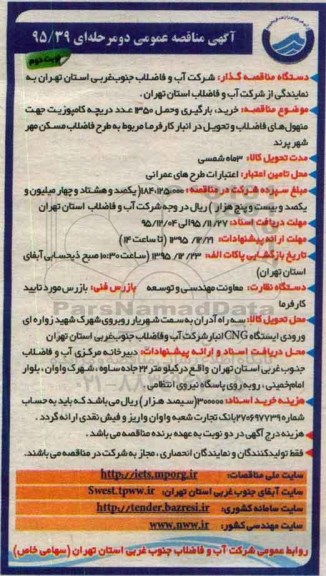 آگهی مناقصه عمومی دو مرحله‌ای ۹۵/۳۹
نوبت دوم
دستگاه مناقصه گذار: شرکت آب و فاضلاب جنوب‌غربی استان تهران به
نمایندگی از شرکت آب و فاضلاب استان تهران.
موضوع مناقصه: خرید، بارگیری و حمل ۱۳۵۰ عدد دریچه کامپوزیت جهت
منهول‌های فاضلاب و تحویل در انبار کارفرما مربوط به طرح فاضلاب مسکن مهر
شهر پرند
مدت تحویل کالا: ۳ماه شمسی
محل تامین اعتبار: اعتبارات طرح های عمرانی
مبلغ سپرده شرکت در مناقصه: ۱۸۴،۱۲۵،۰۰۰( یکصد و هشتاد و چهار میلیون و
یکصد و بیست و پنج هزار ) ریال در وجه شرکت آب و فاضلاب استان تهران
مهلت دریافت اسناد: ۹۵/۱۱/۲۷ الی ۹۵/۱۲/۰۴
مهلت ارائه پیشنهادات: ۱۳۹۵/۱۲/۲۱ (تا ساعت ۱۴)
تاریخ بازگشایی پاکات الف: ۱۳۹۵/۱۲/۲۳ (ساعت ۱۰:۳۰ صبح ذیحسابی آبفای
استان تهران)
دستگاه نظارت: معاونت مهندسی و توسعه بازرس فنی: بازرس مورد تایید
کارفرما
محل تحویل کالا: سه راه آدران به سمت شهریار روبروی شهرک شهید زواره ای
ورودی ایستگاه CNG انبار شرکت آب وفاضلاب جنوب‌غربی استان تهران
محل دریافت اسناد و ارائه پیشنهادات: دبیرخانه مرکزی آب و فاضلاب
جنوب غربی استان تهران واقع در کیلومتر ۲۲ جاده ساوه ، شهرک واوان ، بلوار
امام‌خمینی ، روبه روی پاسگاه نیروی انتظامی
هزینه خرید اسناد: ۳۰۰۰۰۰(سیصد هزار) ریال می باشد که باید به حساب
شماره ۲۷۰۶۹۷۷۳۹ بانک تجارت شعبه واوان واریز و فیش نقدی ارائه گردد .
هزینه درج آگهی در دو نوبت به عهده برنده مناقصه می باشد .
فقط تولیدکنندگان و نمایندگان انحصاری ، مجاز به شرکت در مناقصه می باشند.
سایت ملی مناقصات: http://iets.mporg.ir
سایت آبفای جنوب غربی استان تهران: Swest.tpww.ir
سایت سامانه کشوری: http://tender.bazresi.ir
سایت مهندسی کشور: www.nww.ir
روابط عمومی شرکت آب و فاضلاب جنوب غربی استان تهران (سهامی خاص)